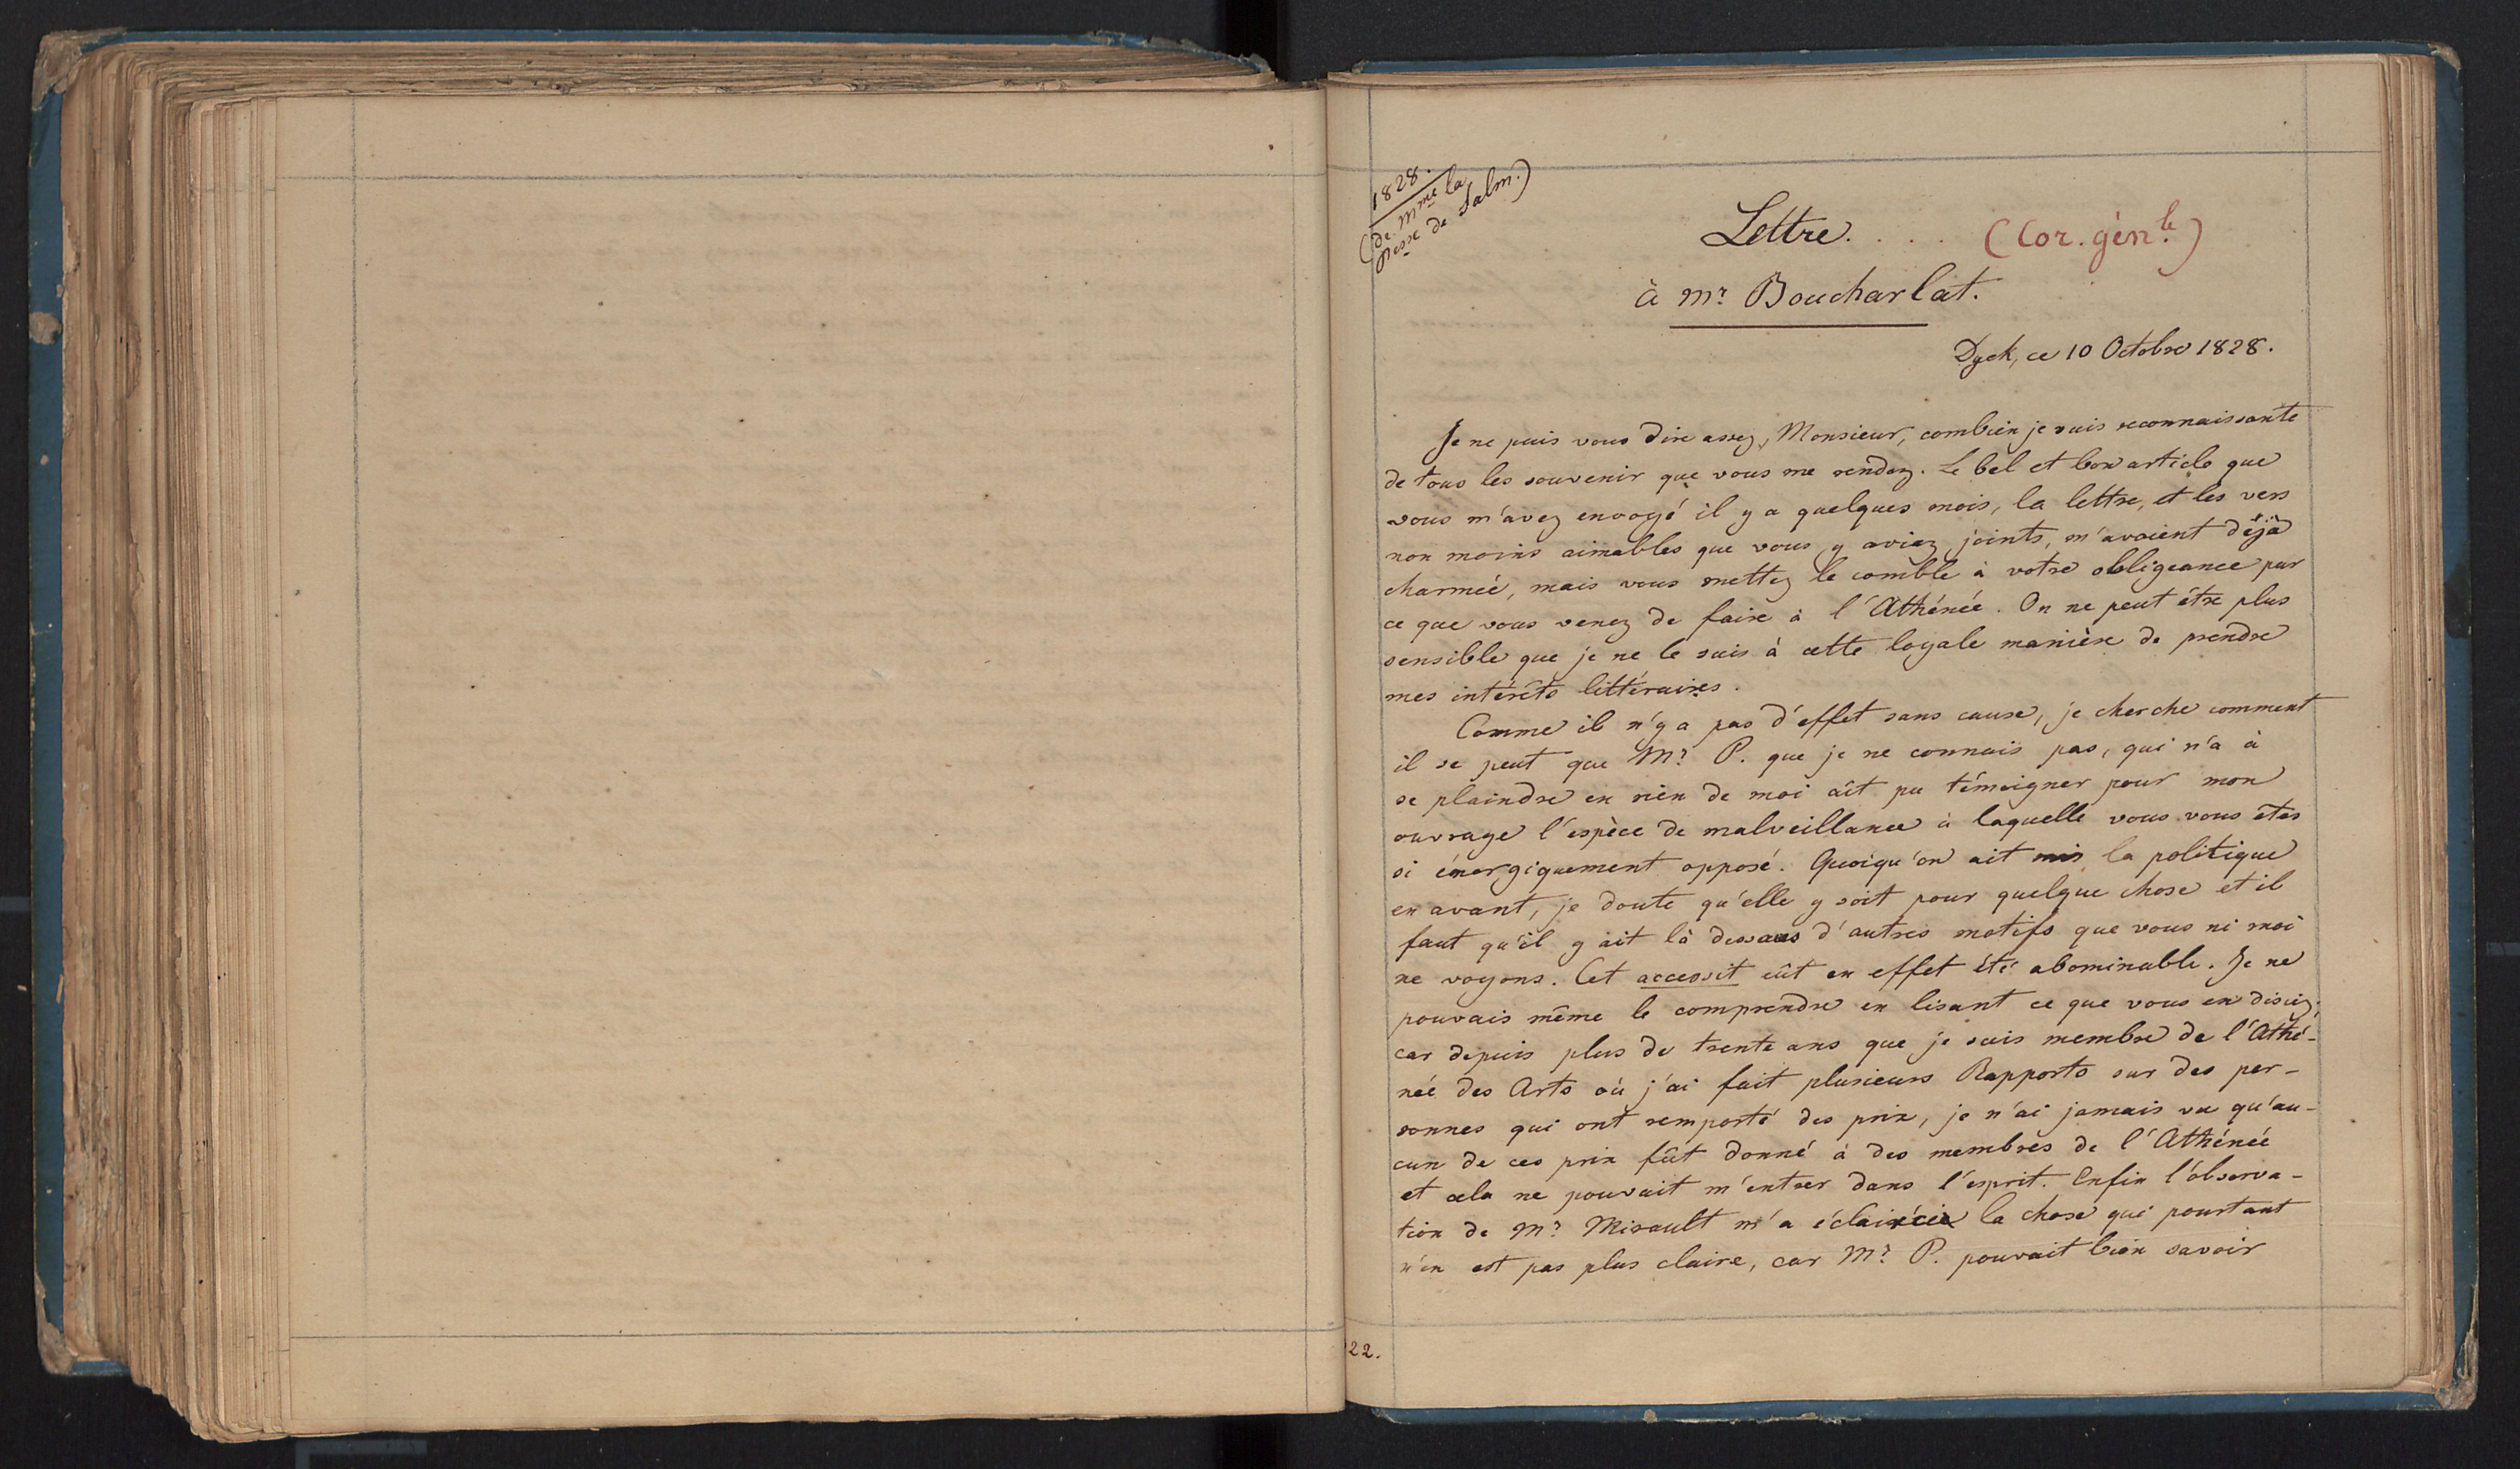 1828.
(de Mme la
Pesse de Salm.)
Lettre. . . . (Cor. génle.)
à Mr. Boucharlat.
Dyck, ce 10 Octobre 1828.
Je ne puis vous dire assez, Monsieur, combien je suis reconnaissante
de tous les souvenir que vous me rendez. Le bel et bon article que
vous m'avez envoyé il y a quelques mois, la lettre, et les vers
non moins aimables que vous y aviez joints, m'avaient déjà
charmée, mais vous mettez le comble à votre obligeance par
ce que vous venez de faire à l'Athénée. On ne peut être plus
sensible que je ne le suis à cette loyale manière de prendre
mes intérêts littéraires.
Comme il n'y a pas d'effet sans cause, je cherche comment
il se peut que Mr. P. que je ne connais pas, qui n'a à
se plaindre en rien de moi ait pu témoigner pour mon
ouvrage l'espèce de malveillance à laquelle vous vous êtes
si énergiquement opposé. Quoiqu'on ait mis la politique
en avant, je doute qu'elle y soit pour quelque chose et il
faut qu'il y ait là dessous d'autres motifs que vous ni moi
ne voyons. Cet accessit eût en effet été abominable. Je ne
pouvais même le comprendre en lisant ce que vous en disiez;
car depuis plus de trente ans que je suis membre de l'Athé-
née des Arts où j'ai fait plusieurs Rapports sur des per-
sonnes qui ont remporté des prix, je n'ai jamais vu qu'au-
cun de ces prix fût donné à des membres de l'Athénée
et cela ne pouvait m'entrer dans l'esprit. Enfin l'observa-
tion de Mr. Mirault m'a éclairci la chose qui pourtant
n'en est pas plus claire, car Mr. P. pouvait bien savoir
22.